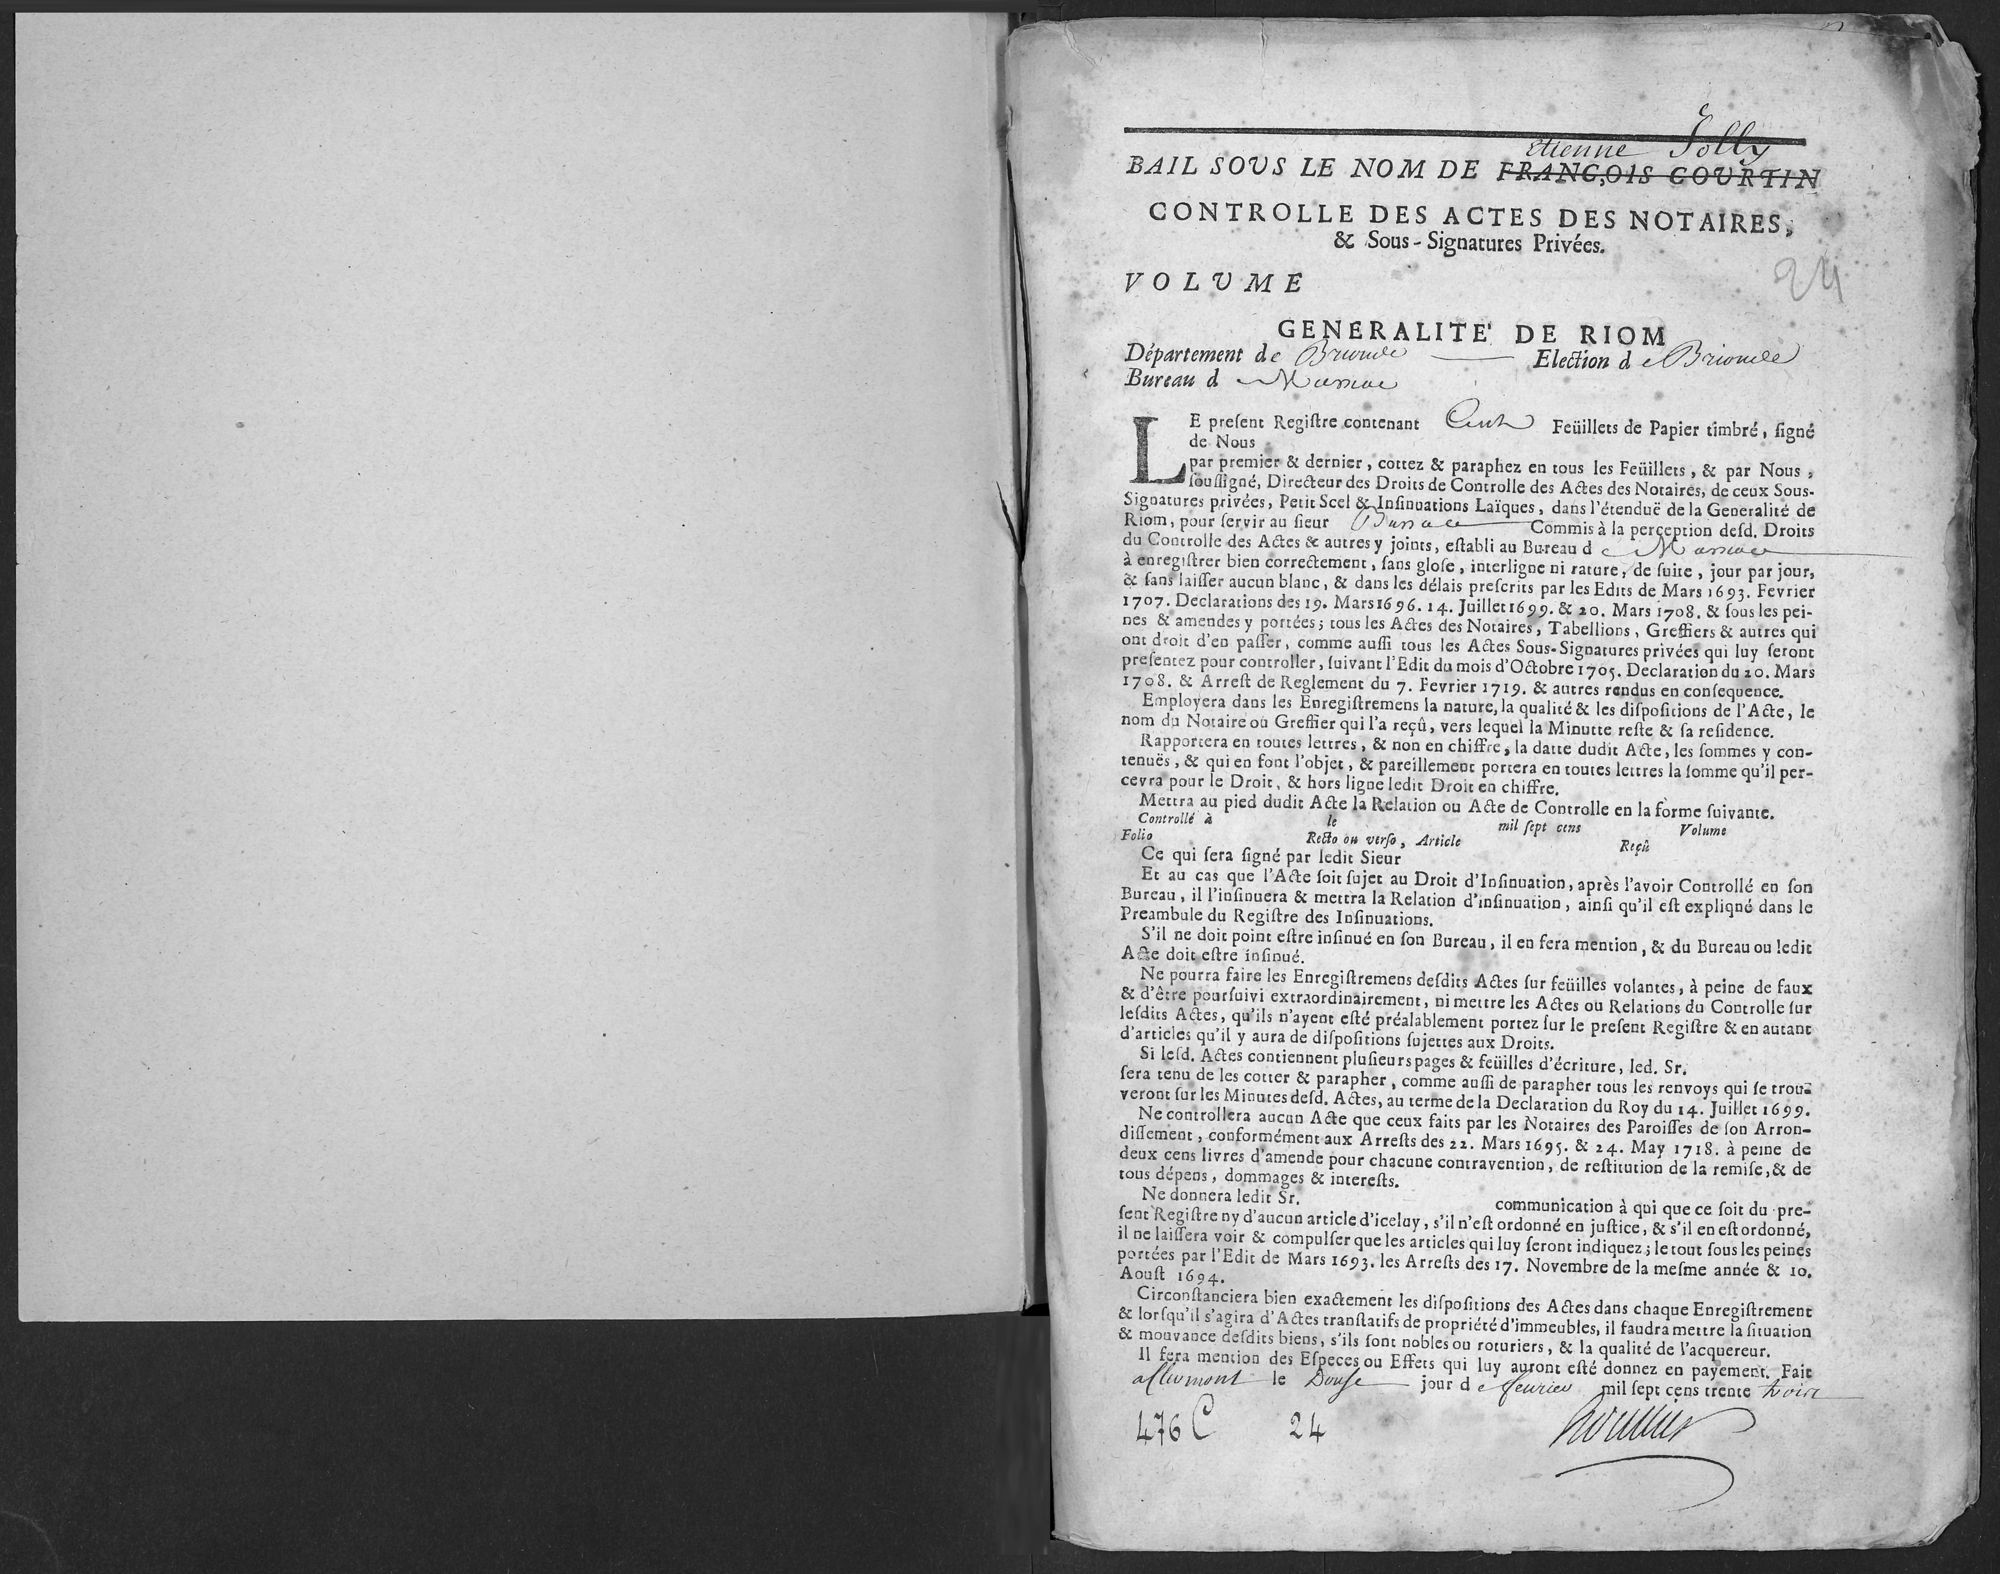 Etienne Jolly
BAIL SOUS LE NOM DE FRANÇOIS COURTIN
CONTROLLE DES ACTES DES NOTAIRES,
& Sous-Signatures Privées.
24
VOLUME
GENERALITE' DE RIOM
Département de Brioude Election de Brioude
Bureau de Massiac
LE preſent Regiſtre contenant Cent Feüillets de Papier timbré, ſigné
de Nous
par premier & dernier, cottez & paraphez en tous les Feüillets, & par Nous,
ſouſſigné, Directeur des Droits de Controlle des Actes des Notaires, de ceux Sous-
Signatures privées, Petit Scel & Inſinuations Laïques, dans l'étenduë de la Generalité de
Riom, pour ſervir au ſieur Commis à la perception deſd. Droits
du Controlle des Actes & autres y joints, eſtabli au Bureau de Massiac
à enregiſtrer bien correctement, ſans gloſe, interligne ni rature, de ſuite, jour par jour,
& ſans laiſſer aucun blanc, & dans les délais preſcrits par les Edits de Mars 1693. Fevrier
1707. Declarations des 19. Mars 1696. 14. Juillet 1699. & 20. Mars 1708. & ſous les pei-
nes & amendes y portées; tous les Actes des Notaires, Tabellions, Greffiers & autres qui
ont droit d'en paſſer, comme auſſi tous les Actes Sous-Signatures privées qui luy ſeront
preſentez pour controller, ſuivant l'Edit du mois d'Octobre 1705. Declaration du 20. Mars
1708. & Arreſt de Reglement du 7. Fevrier 1719. & autres rendus en conſequence.
Employera dans les Enregiſtremens la nature, la qualité & les diſpoſitions de l'Acte, le
nom du Notaire ou Greffier qui l'a reçû, vers lequel la Minutte reſte & ſa reſidence.
Rapportera en toutes lettres, & non en chiffre, la datte dudit Acte, les ſommes y con-
tenuës, & qui en font l'objet, & pareillement portera en toutes lettres la ſomme qu'il per-
cevra pour le Droit, & hors ligne ledit Droit en chiffre.
Mettra au pied dudit Acte la Relation ou Acte de Controlle en la forme ſuivante.
Controllé à le mil ſept cens Volume
Folio Recto ou verſo, Article Reçû
Ce qui ſera ſigné par ledit Sieur
Et au cas que l'Acte ſoit ſujet au Droit d'Inſinuation, après l'avoir Controllé en ſon
Bureau, il l'inſinuera & mettra la Relation d'inſinuation, ainſi qu'il eſt expliqué dans le
Preambule du Regiſtre des Inſinuations.
S'il ne doit point eſtre inſinué en ſon Bureau, il en fera mention, & du Bureau ou ledit
Acte doit eſtre inſinué.
Ne pourra faire les Enregiſtremens deſdits Actes ſur feüilles volantes, à peine de faux
& d'être pourſuivi extraordinairement, ni mettre les Actes ou Relations du Controlle ſur
leſdits Actes, qu'ils n'ayent eſté préalablement portez ſur le preſent Regiſtre & en autant
d'articles qu'il y aura de diſpoſitions ſujettes aux Droits.
Si leſd. Actes contiennent pluſieurs pages & feüilles d'écriture, led. Sr.
ſera tenu de les cotter & parapher, comme auſſi de parapher tous les renvoys qui ſe trou-
veront ſur les Minutes deſd. Actes, au terme de la Declaration du Roy du 14. Juillet 1699.
Ne controllera aucun Acte que ceux faits par les Notaires des Paroiſſes de ſon Arron-
diſſement, conformément aux Arreſts des 22. Mars 1695. & 24. May 1718. à peine de
deux cens livres d'amende pour chacune contravention, de reſtitution de la remiſe, & de
tous dépens, dommages & intereſts.
Ne donnera ledit Sr. communication à qui que ce ſoit du pre-
ſent Regiſtre ny d'aucun article d'iceluy, s'il n'eſt ordonné en juſtice, & s'il en eſt ordonné,
il ne laiſſera voir & compulſer que les articles qui luy ſeront indiquez; le tout ſous les peines
portées par l'Edit de Mars 1693. les Arreſts des 17. Novembre de la meſme année & 10.
Aouſt 1694.
Circonſtanciera bien exactement les diſpoſitions des Actes dans chaque Enregiſtrement
& lorſqu'il s'agira d'Actes tranſlatifs de propriété d'immeubles, il faudra mettre la ſituation
& mouvance deſdits biens, s'ils ſont nobles ou roturiers, & la qualité de l'acquereur.
Il fera mention des Eſpeces ou Effets qui luy auront eſté donnez en payement. Fait
le Douse jour de feurier mil ſept cens trente trois
476 C 24